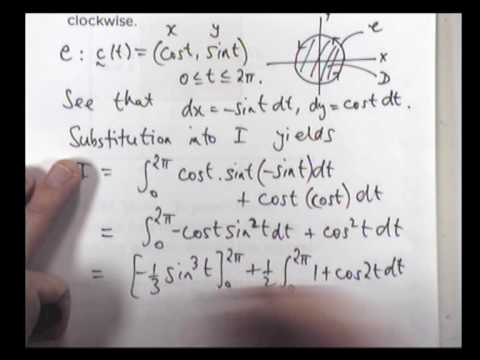 clockwise.
x y
C : c(t) = (cost, sint)
0 ≤ t ≤ 2π.
C
x
D
See that dx = -sint dt, dy = cost dt.
Substitution into I yields
I = ∫₀^2π cost. sint (-sint) dt
+ cost (cost) dt
= ∫₀^2π -cost sin²t dt + cos²t dt
= [-1/3 sin³t]₀^2π + 1/2 ∫^2π 1 + cos2t dt